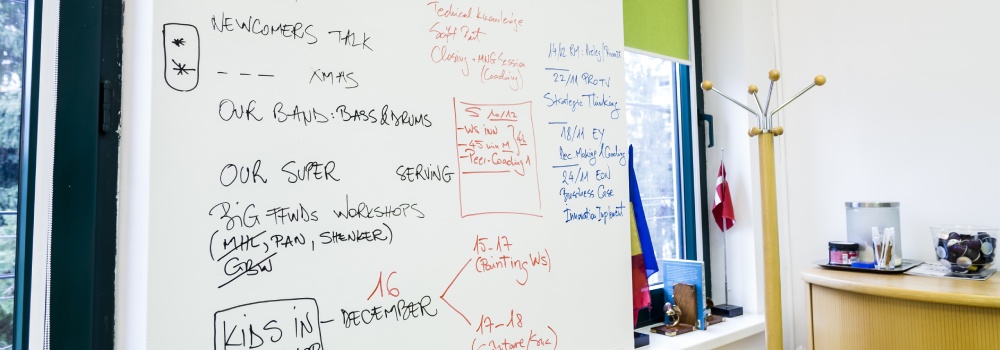 NEWCOMERS TALK
--- XMAS
OUR BAND: BASS & DRUMS
OUR SUPER SERVING
BIG FFWDs WORKSHOPS
(MHL, PAN, SHENKER)
GBW
KIDS IN
- 16 DECEMBER
15-17
(Painting Ws)
17-18
Technical Knowledge
Soft Part
Closing + MNG Session
(Coaching)
S 10/12
- WS INN
- 45 min M
- Peer-Coaching 1
14/12 RM:
22/11 PROTV
Strategic Thinking
18/11 EY
Dec Making / Coaching
24/11 EON
Bussiness Case
Innovation Implement